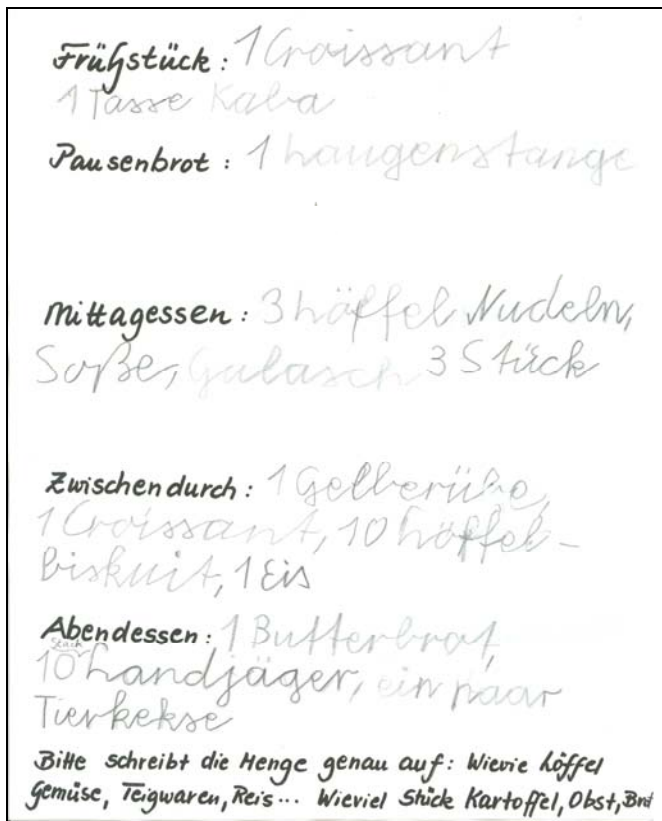 Frühstück: 1 Croissant
1 Tasse Kaba
Pausenbrot: 1 Laugenstange
Mittagessen: 3 Löffel Nudeln,
Soße, Gulasch 3 Stück
Zwischendurch: 1 Gelberübe,
1 Croissant, 10 Löffel-
biskuit, 1 Eis
Abendessen: 1 Butterbrot,
Stück
10 Landjäger, ein paar
Tierkekse
Bitte schreibt die Menge genau auf: Wievie Löffel
Gemüse, Teigwaren, Reis... Wieviel Stück Kartoffel, Obst, Brot